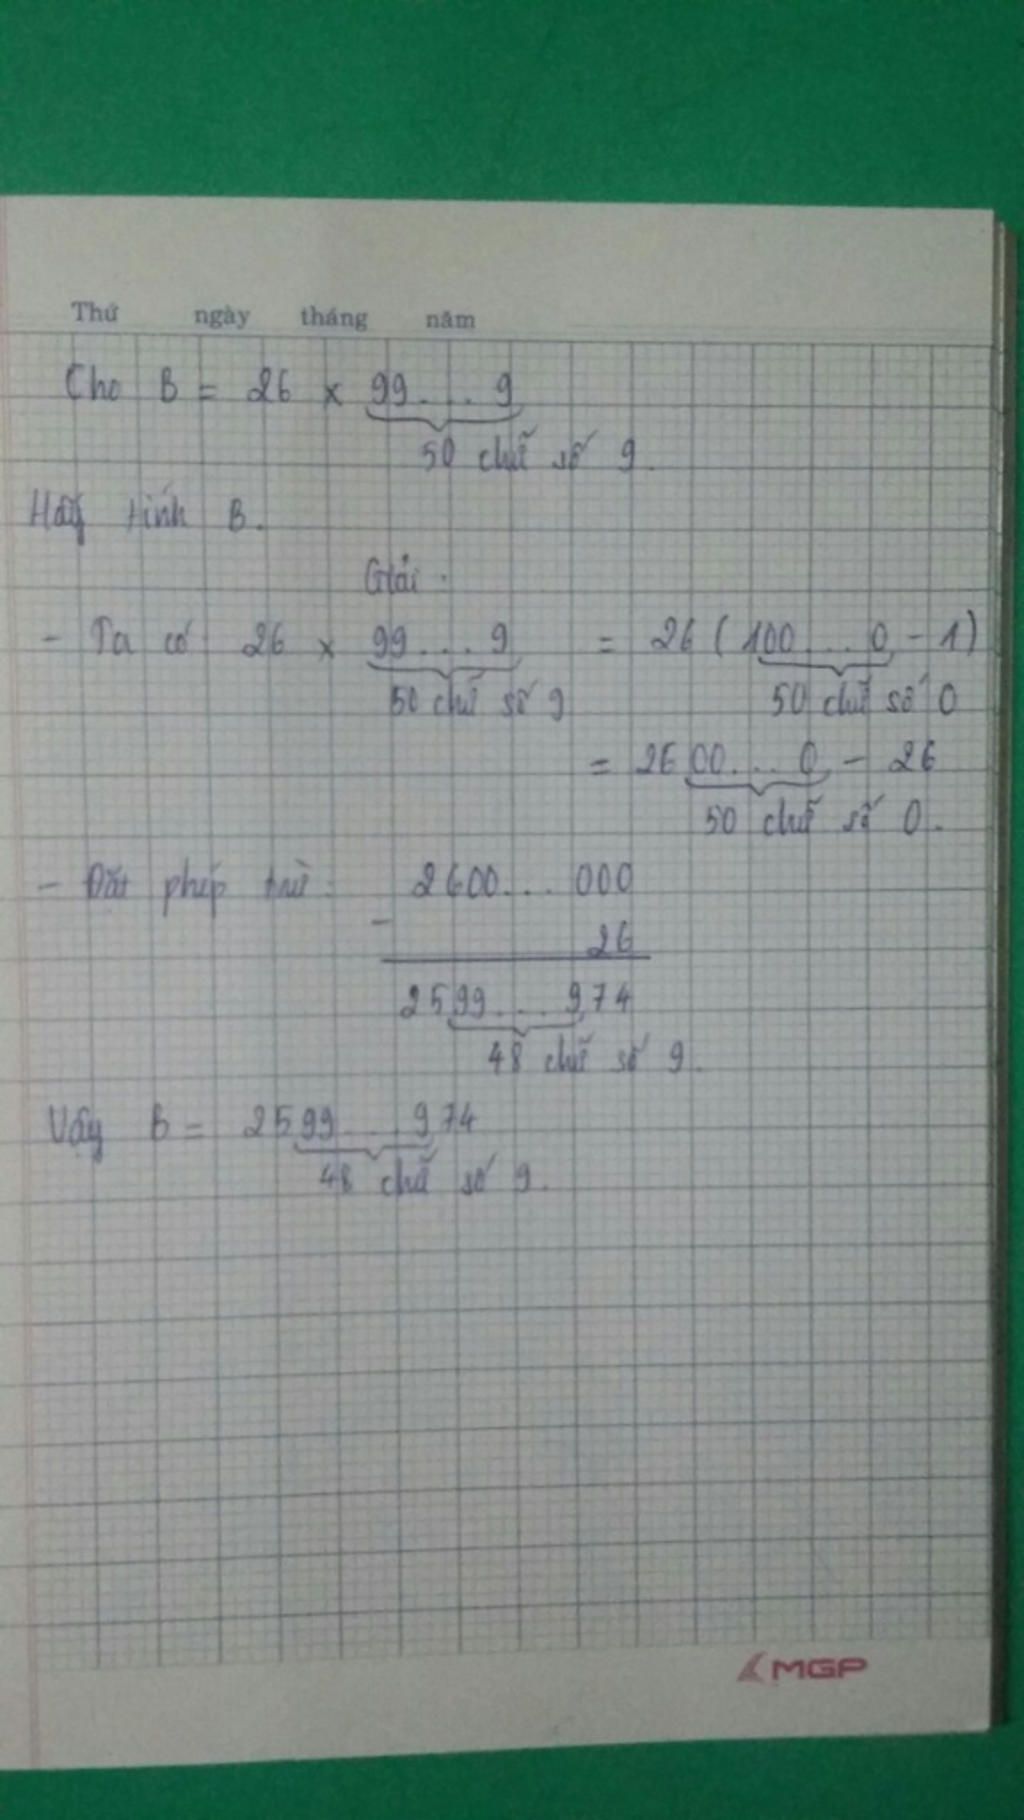 Thứ ngày tháng năm
Cho B = 26 x 99...9
50 chữ số 9.
Hãy tính B.
Giải:
- Ta có 26 x 99...9 = 26 (100...0 - 1)
50 chữ số 9 50 chữ số 0
= 2600...0 - 26
50 chữ số 0.
- Đặt phép trừ: 2600...000
-
26
2599...974
48 chữ số 9.
Vậy B = 2599...974
48 chữ số 9.
MGP